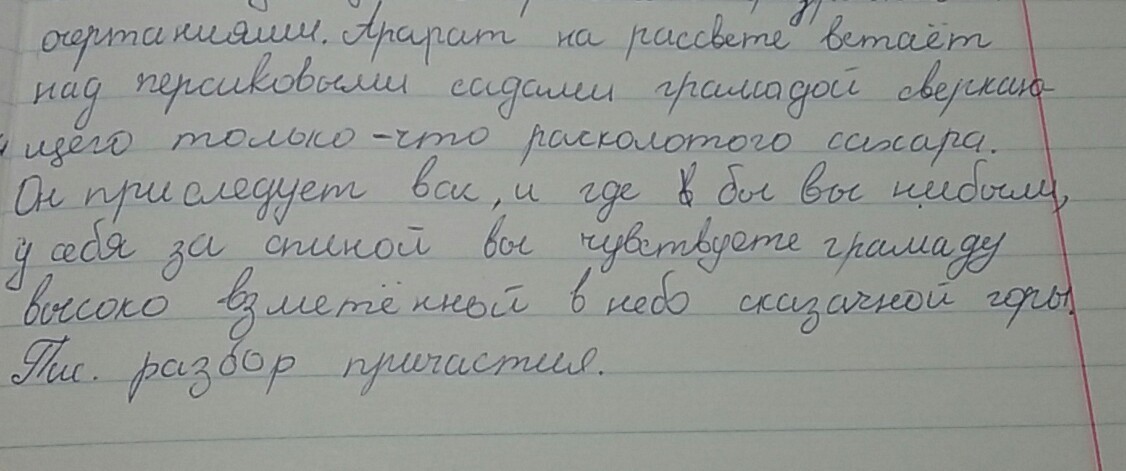 очертаниями. Арарат на рассвете встаёт
над персиковыми садами грамадой сверкаю-
щего только-что расколотого сахара.
Он приследует вас, и где бы вы нибыли,
у себя за спиной вы чувствуете грамаду
высоко взметённый в небо сказачной горы.
Пис. разбор причастия.